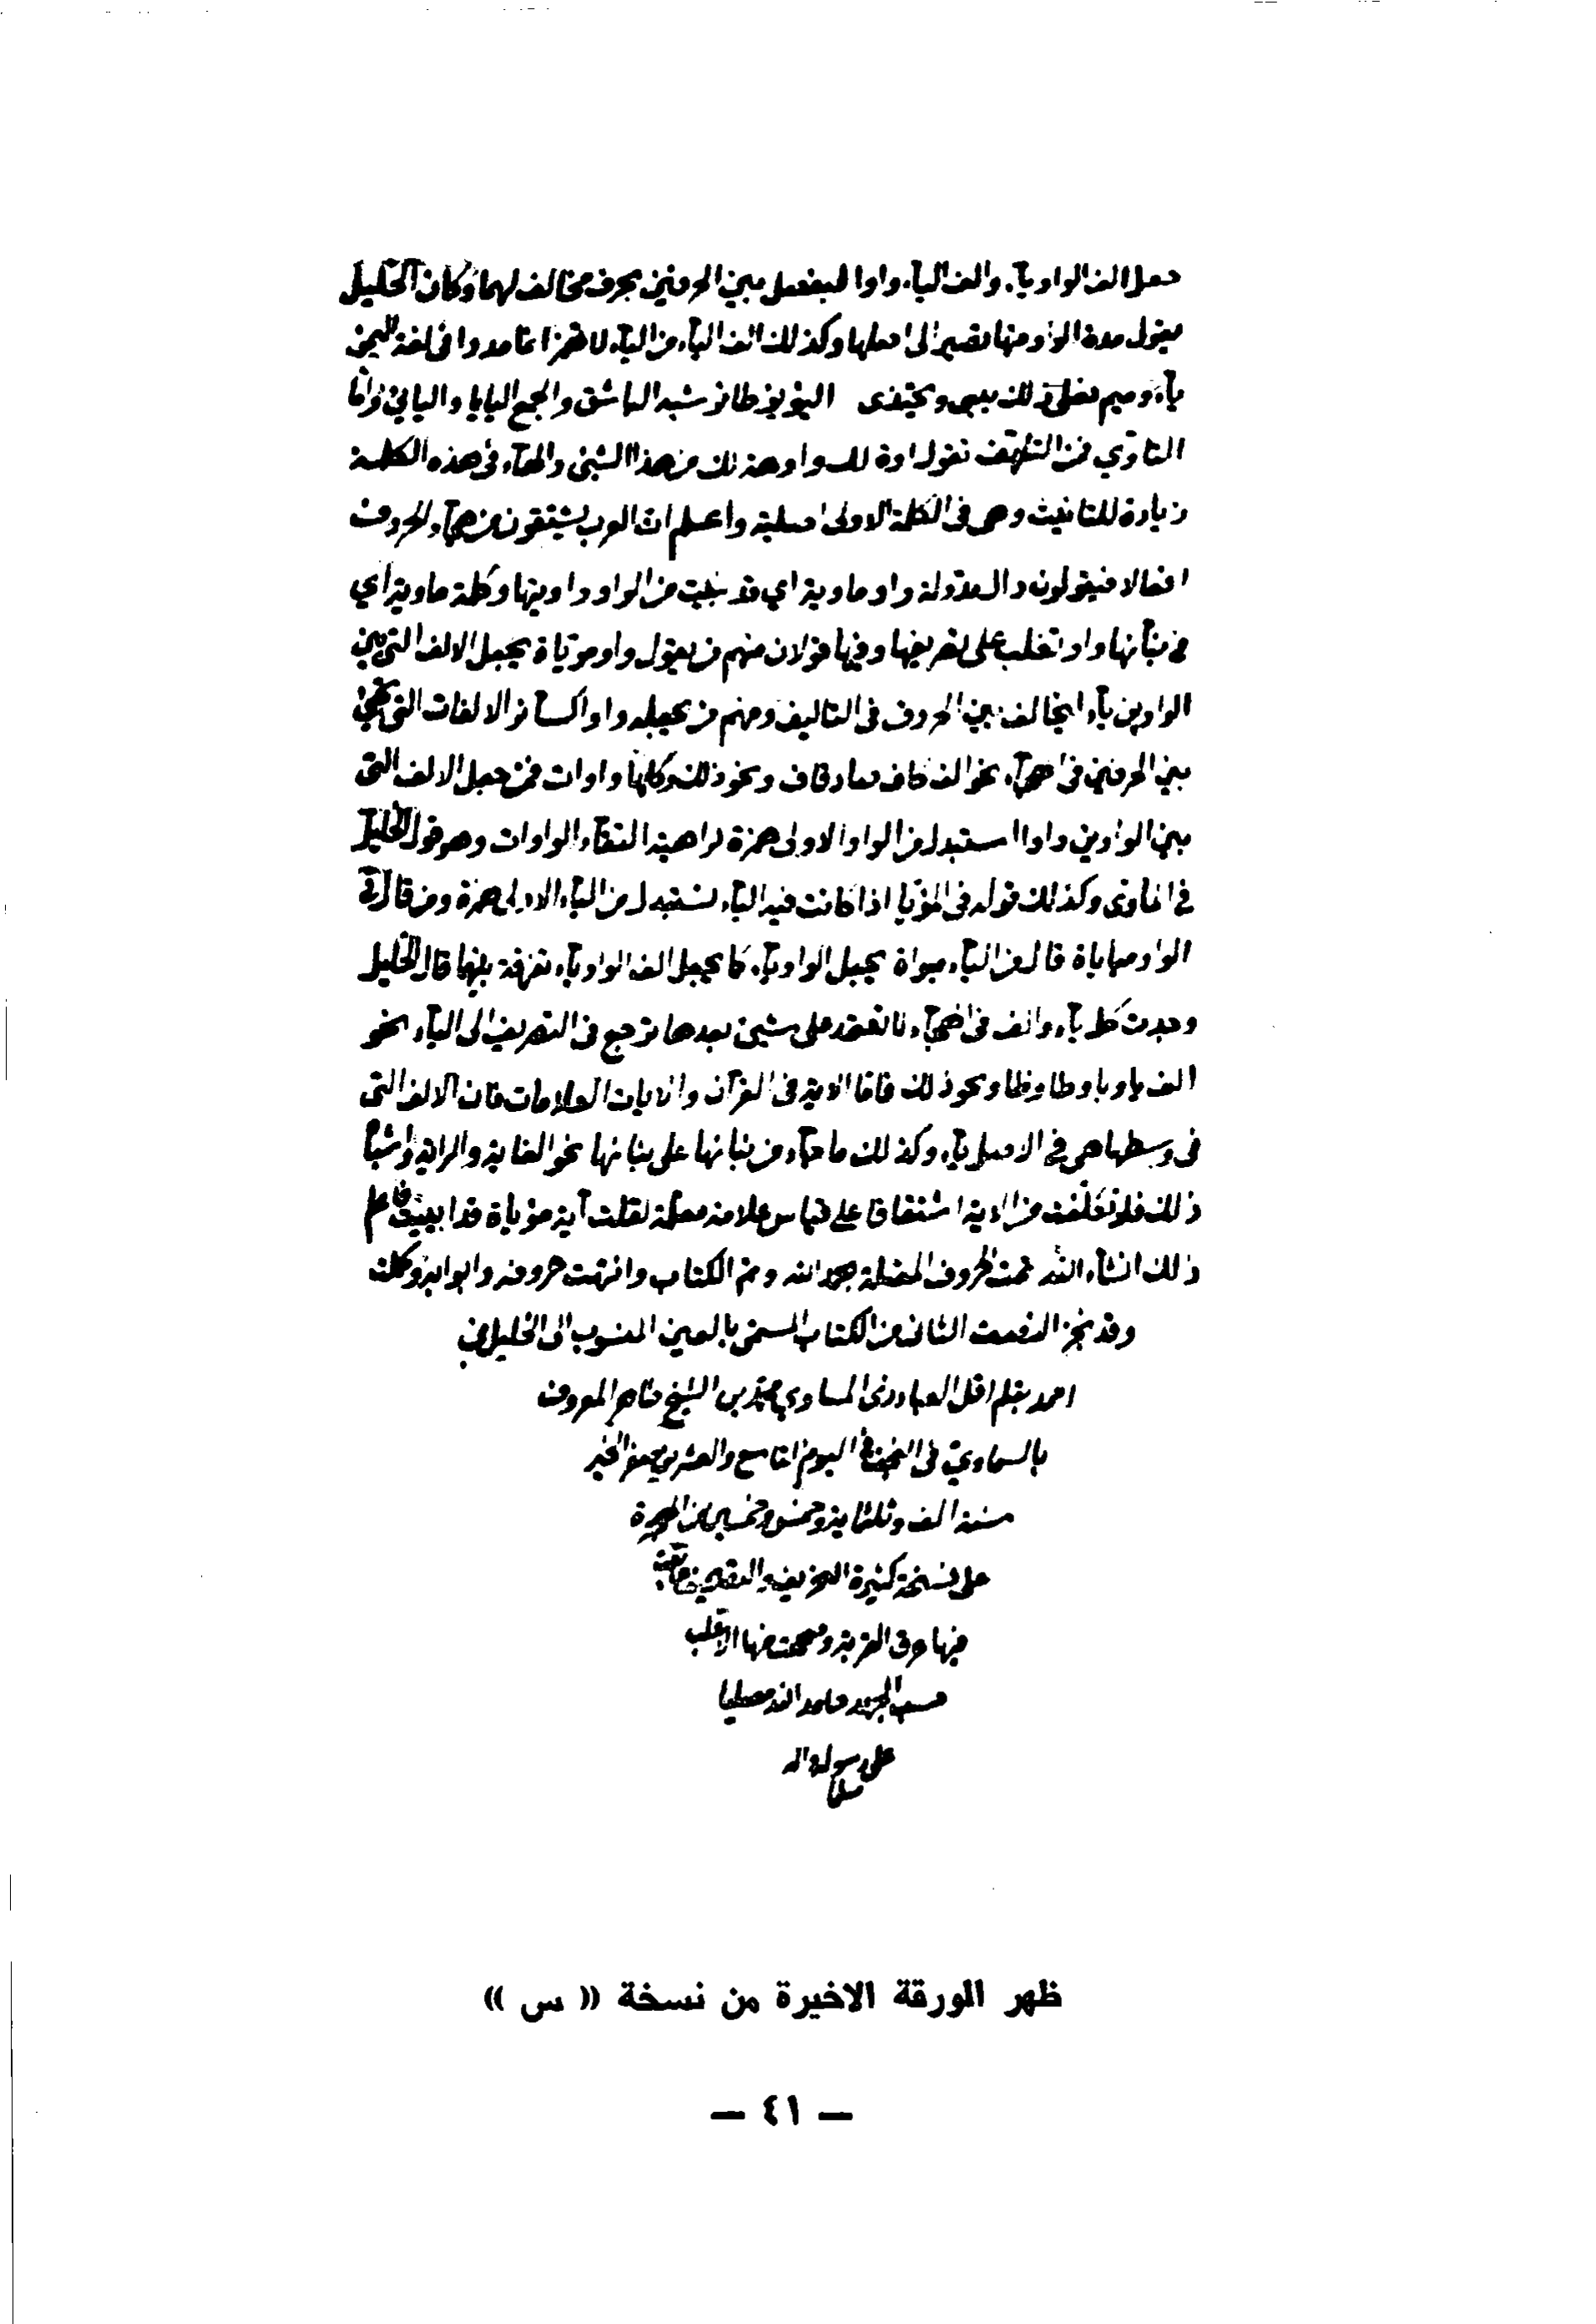 جعل الف الواو يآء والف اليآء واوا ليفصل بين الحرفين بحرف مخالف لهما وكان الخليل
يقول مدة الواو منها تصير الى اصلها وكذلك الف اليآء من اليآء لا همز انما مدوا في لغة اليمن
يآء وميم فعلى ذلك يبنى ويحتذى اليؤيؤ طائر شبه الباشق والجمع اليايا واليائي واما
التاوي فمن التلهف تقول اوة لك واوهة لك من هذا الشئ والهآء في هذه الكلمة
زيادة للتانيث وهي في الكلمة الاولى اصلية واعلم ان العرب يشتقون من هجآء الحروف
افعالا فيقولون دال واو ماوية اي قد بنيت من الواو وكلمة ماوية اي
من بنآئها واو تغلب على تصريفها وفيها قولان منهم من يقول واو مؤياة يجعل الالف التي بين
الواوين يآء ليخالف بين الحروف في التاليف ومنهم من يجعله واوا كسآئر الالفات التي تجئ
بين الحرفين في الهجآء نحو الف كاف صاد وقاف ونحو ذلك وكلها واوات فمن جعل الالف التي
بين الواوين واوا استبدل من الواو الاولى همزة كراهية التقآء الواوات وهو قول الخليل
في وكذلك قوله في المؤيا اذا كانت فيه اليآء استبدل من اليآء الاولى همزة ومن قال في
الواو قال من اليآء ميواة يجعل الواو يآء كما يجعل الف الواو يآء تفرقة بينهما قال الخليل
وجدت كل يآء والف في الهجآء لا تعتمد على شئ بعدها ترجع في التصريف الى اليآء نحو
الف يا وبا وطا وظا ونحو ذلك فاما الاية في القرآن والايات العلامات فان الالف التي
في وسطها هي في الاصل يآء وكذلك ما جآء من بنائها على بنائها نحو الغاية والراية واشباه
ذلك فلو تكلفت من الاية اشتقاقا على قياس علامة معلمة لقلت آية مؤياة قد اييت فاعلم
ذلك انشآء الله تمت الحروف المعتلة بحمد الله وتم الكتاب وانتهت حروفه وابوابه وكملت
وقد نجز النصف الثاني من الكتاب المسمى بالعين المنسوب الى الخليل بن
احمد بقلم اقل العباد المساوي محمد بن الشيخ طاهر المعروف
بالسماوي في النجف في اليوم التاسع والعشرين من صفر الخير
سنة الف وثلثماية وخمس وخمسين من الهجرة
على نسخة كثيرة التحريف والتصحيف
فيها عرق القربة وصححت منها الاغلب
حسب الجهد حامدا لله مصليا
على رسوله وآله
مسلما
ظهر الورقة الاخيرة من نسخة (( س ))
— ٤١ —